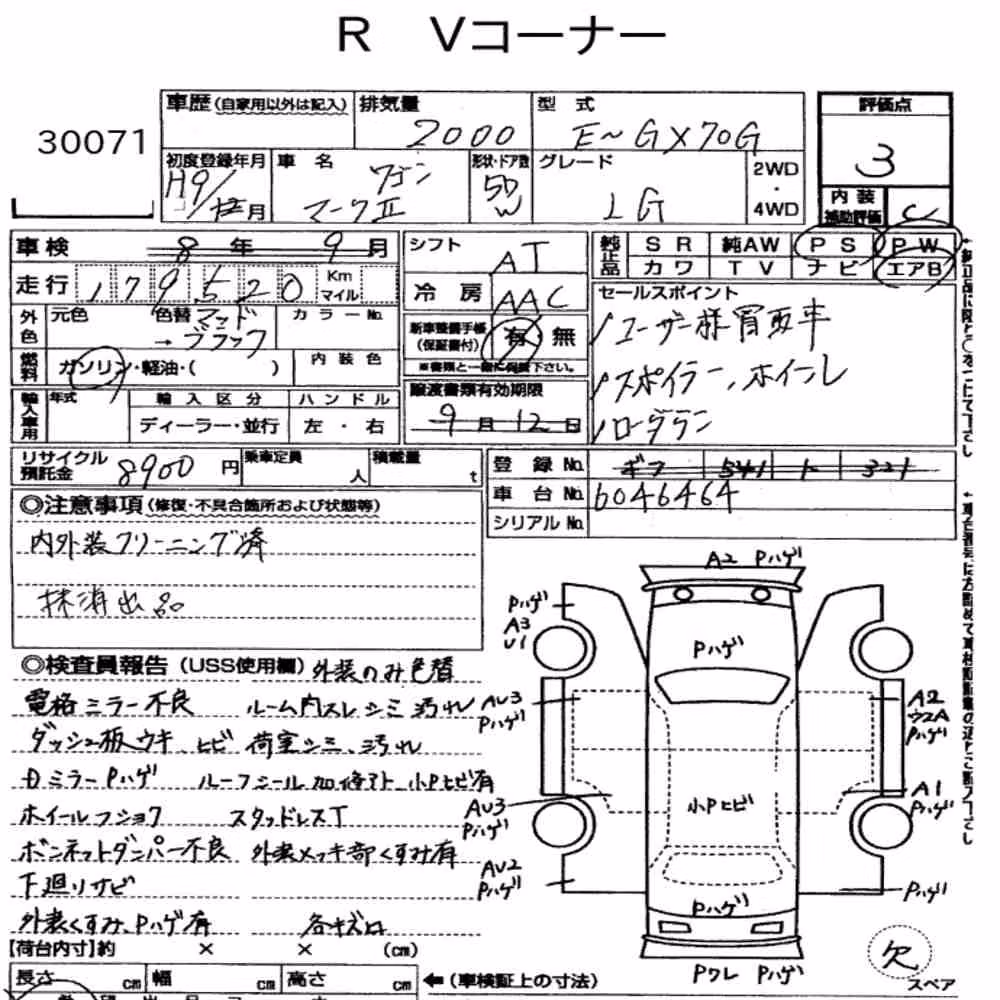 R Vコーナー
30071
車歴(自家用以外は記入) 排気量 2000 型式 E-GX70G
評価点 3
初度登録年月 H9/ 月 車名 ワゴン マークⅡ 形状・ドア数 5D W グレード LG 2WD・4WD
内装補助評価 C
車検 8年 9月
シフト AT
純正品 SR 純AW PS PW
カワ TV ナビ エアB
走行 179520 Km マイル
冷房 AAC
セールスポイント
ユーザー様買取車
スポイラー、ホイール
ローダウン
外色 元色 色替 マッド → ブラック カラーNo.
新車整備手帳(保証書付) 有 無
※書類と一緒に保管下さい。
燃料 ガソリン・軽油・( ) 内装色
輸入車用 年式 輸入区分 ハンドル
ディーラー・並行 左・右
譲渡書類有効期限
9月12日
リサイクル預託金 8900円 乗車定員 人 積載量 t
登録No. ギフ 541 ト 321
車台No. 6046464
シリアルNo.
◎注意事項(修復・不具合箇所および状態等)
内外装クリーニング済
抹消出品
◎検査員報告(USS使用欄) 外装のみ色替
電格ミラー不良 ルーム内スレ シミ 汚れ
ダッシュ板ウキ、ヒビ 荷室シミ、汚れ
DミラーPハゲ ルーフシール加修アト、小Pヒビ有
ホイールフショク スタッドレスT
ボンネットダンパー不良 外装メッキ部くすみ有
下廻りサビ
外装くすみ、Pハゲ有 各キズ凹
【荷台内寸】約 × × (cm)
長さ cm 幅 cm 高さ cm ←(車検証上の寸法)
A2 Pハゲ
Pハゲ
A3
U1
Pハゲ
AU3
Pハゲ
A2
Pハゲ
小Pヒビ
A1
Pハゲ
AU3
Pハゲ
AU2
Pハゲ
Pハゲ
Pハゲ
Pワレ Pハゲ
欠
スペア